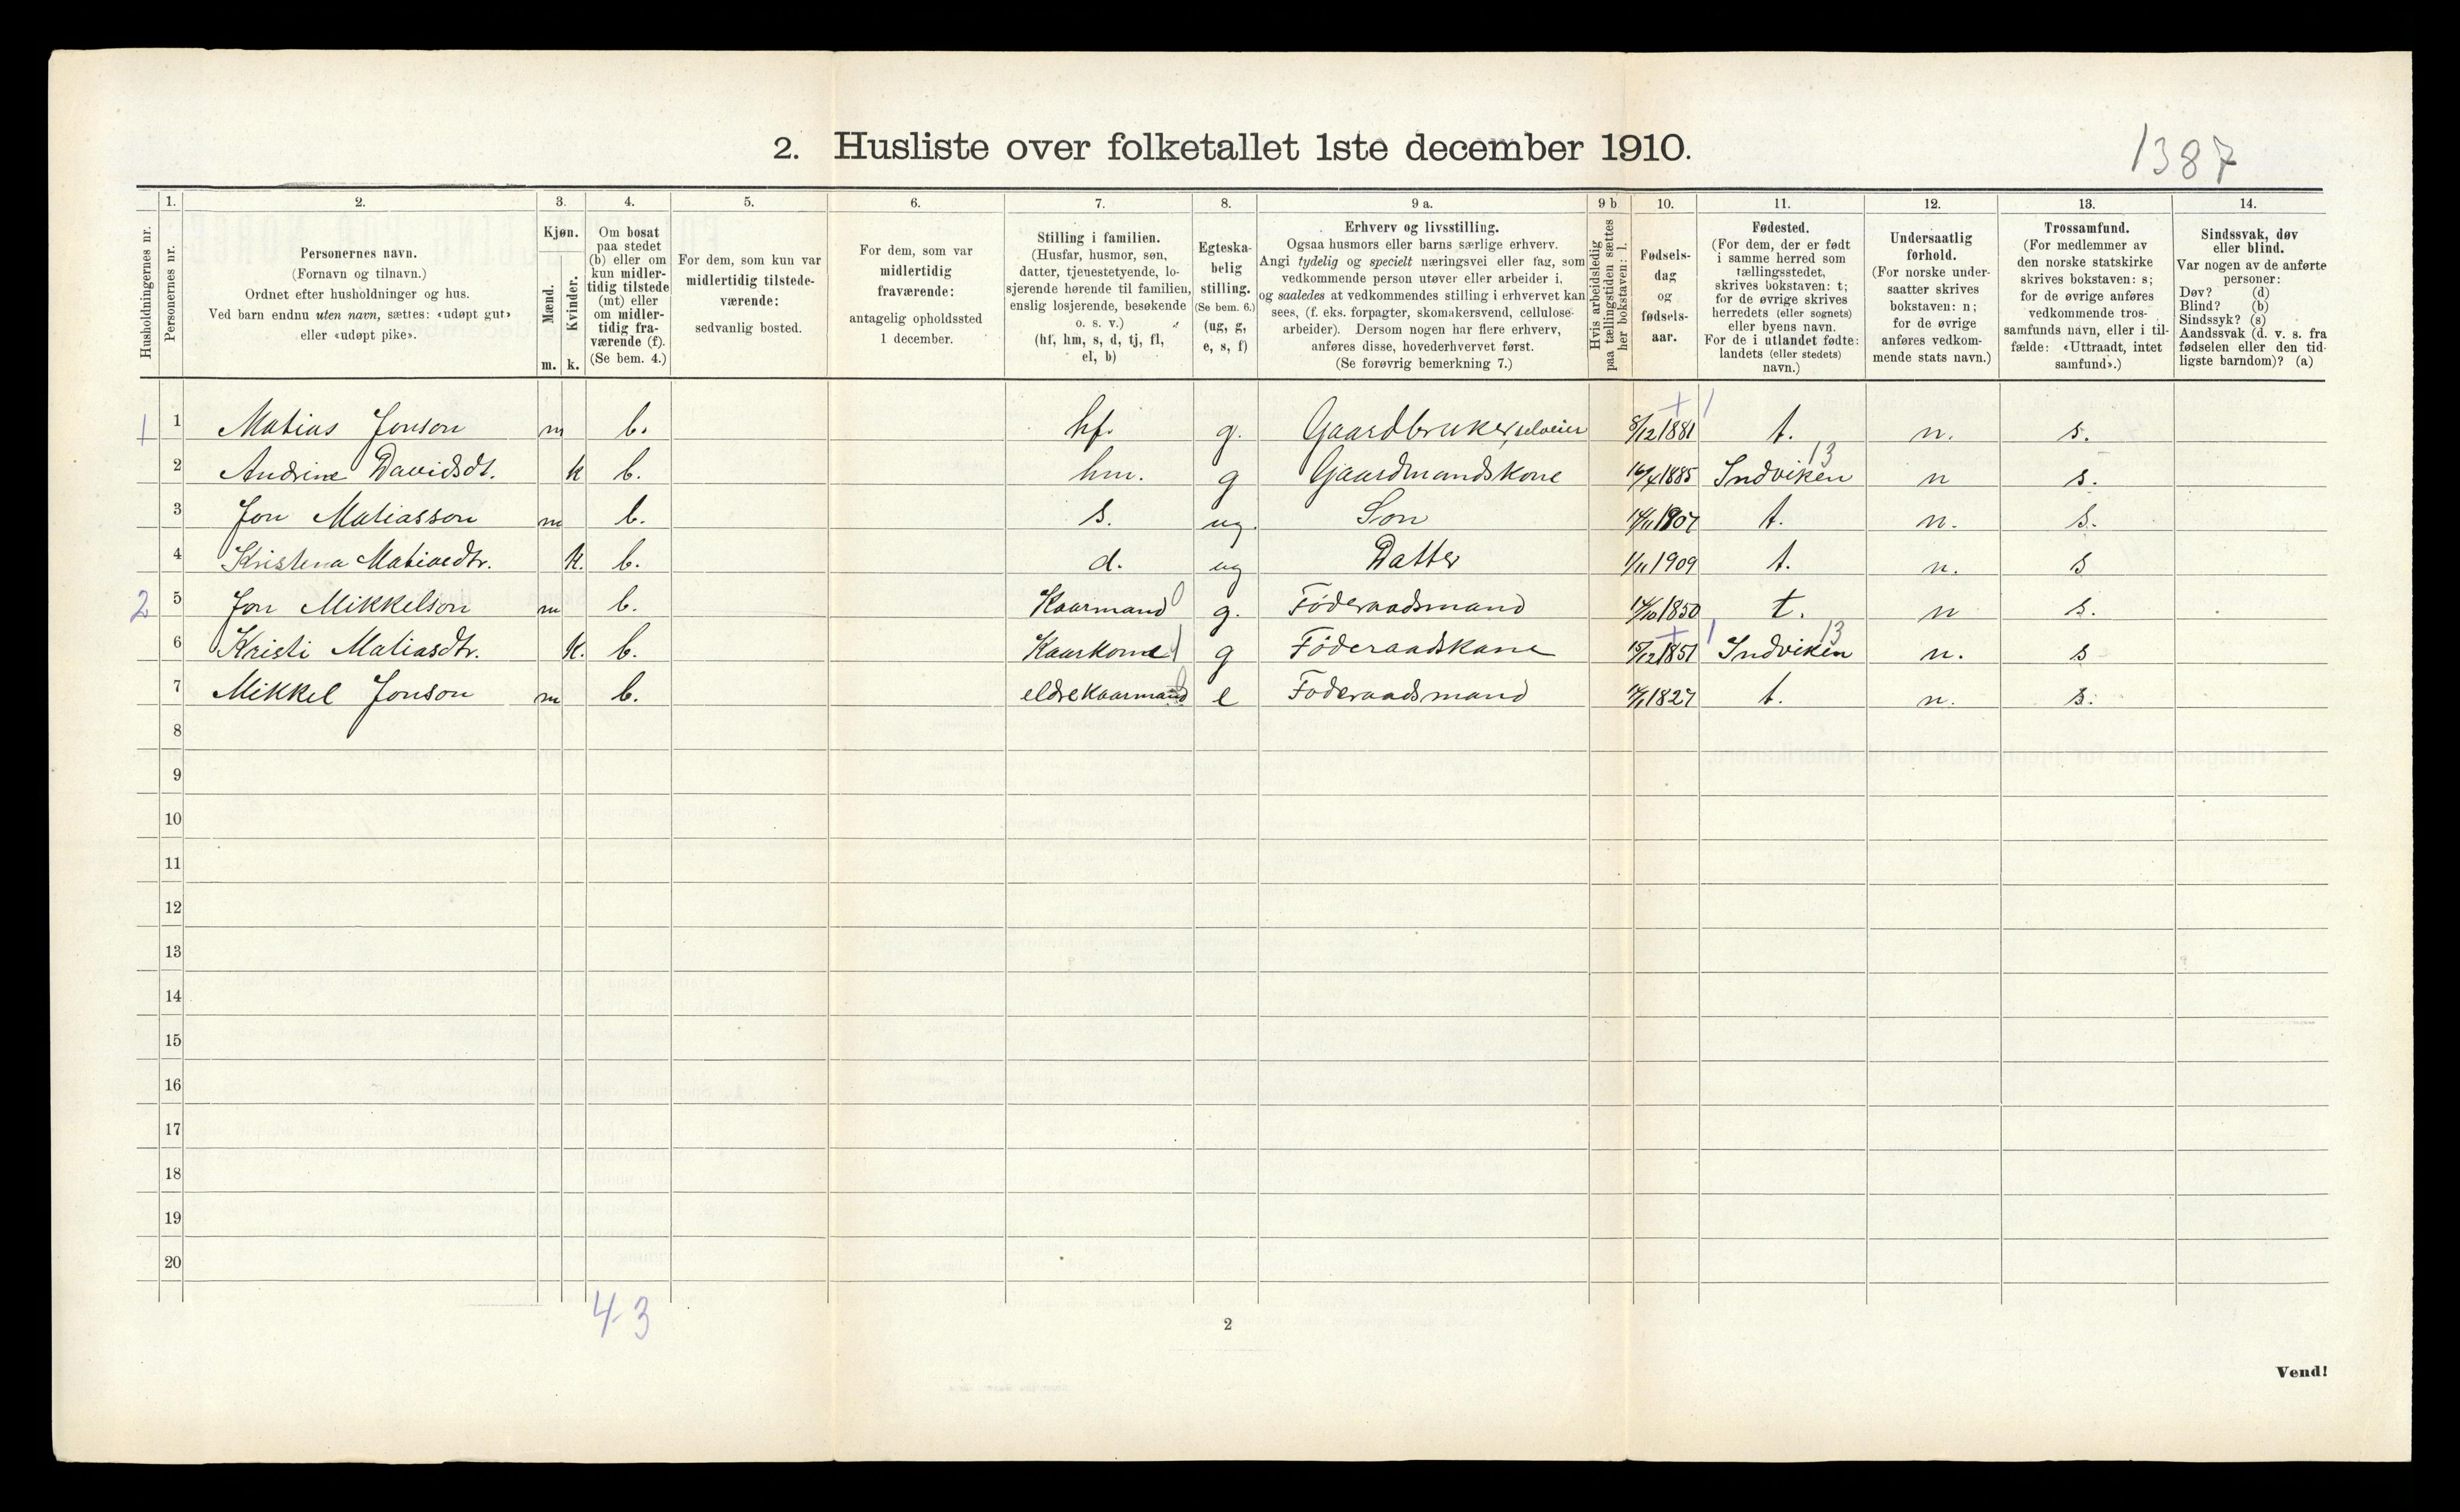 2. Husliste over folketallet 1ste december 1910.
1387
Husholdningernes nr.
1.
Personernes nr.
2.
Personernes navn.
(Fornavn og tilnavn.)
Ordnet efter husholdninger og hus.
Ved barn endnu uten navn, sættes: «udøpt gut»
eller «udøpt pike».
3.
Kjøn.
Mænd.
m.
Kvinder.
k.
4.
Om bosat
paa stedet
(b) eller om
kun midler-
tidig tilstede
(mt) eller
om midler-
tidig fra-
værende (f).
(Se bem. 4.)
5.
For dem, som kun var
midlertidig tilstede-
værende:
sedvanlig bosted.
6.
For dem, som var
midlertidig
fraværende:
antagelig opholdssted
1 december.
7.
Stilling i familien.
(Husfar, husmor, søn,
datter, tjenestetyende, lo-
sjerende hørende til familien,
enslig losjerende, besøkende
o. s. v.)
(hf, hm, s, d, tj, fl,
el, b)
8.
Egteska-
belig
stilling.
(Se bem. 6.)
(ug, g,
e, s, f)
9 a.
Erhverv og livsstilling.
Ogsaa husmors eller barns særlige erhverv.
Angi tydelig og specielt næringsvei eller fag, som
vedkommende person utøver eller arbeider i,
og saaledes at vedkommendes stilling i erhvervet kan
sees, (f. eks. forpagter, skomakersvend, cellulose-
arbeider). Dersom nogen har flere erhverv,
anføres disse, hovederhvervet først.
(Se forøvrig bemerkning 7.)
9 b
Hvis arbeidsledig
paa tællingstiden sættes
her bokstaven: l.
10.
Fødsels-
dag
og
fødsels-
aar.
11.
Fødested.
(For dem, der er født
i samme herred som
tællingsstedet,
skrives bokstaven: t;
for de øvrige skrives
herredets (eller sognets)
eller byens navn.
For de i utlandet fødte:
landets (eller stedets)
navn.)
12.
Undersaatlig
forhold.
(For norske under-
saatter skrives
bokstaven: n;
for de øvrige
anføres vedkom-
mende stats navn.)
13.
Trossamfund.
(For medlemmer av
den norske statskirke
skrives bokstaven: s;
for de øvrige anføres
vedkommende tros-
samfunds navn, eller i til-
fælde: «Uttraadt, intet
samfund».)
14.
Sindssvak, døv
eller blind.
Var nogen av de anførte
personer:
Døv? (d)
Blind? (b)
Sindssyk? (s)
Aandssvak (d. v. s. fra
fødselen eller den tid-
ligste barndom)? (a)
1 1 Matias Jonson m b. hf. g. Gaardbruker, selveier 8/12 1881 t. n. s.
2 Andrine Davidsdt. k b. hm. g Gaardmandskone 16/4 1885 Indviken 13 n s.
3 Jon Matiasson m b. s. ug. Son 14/11 1907 t. n. s.
4 Kristena Matiasdtr. k. b. d. ug Datter 1/11 1909 t. n. s
2 5 Jon Mikkelson m b. Kaarmand g. Føderaadsmand 14/10 1850 t. n s.
6 Kristi Matiasdtr. k. b. Kaarkone g Føderaadskane 15/12 1851 Indviken 13 n. s
7 Mikkel Jonson m b. eldre Kaarmand e Foderaadsmand 1827 t. n. s.
8
9
10
11
12
13
14
15
16
17
18
19
20
4-3
2
Vend!